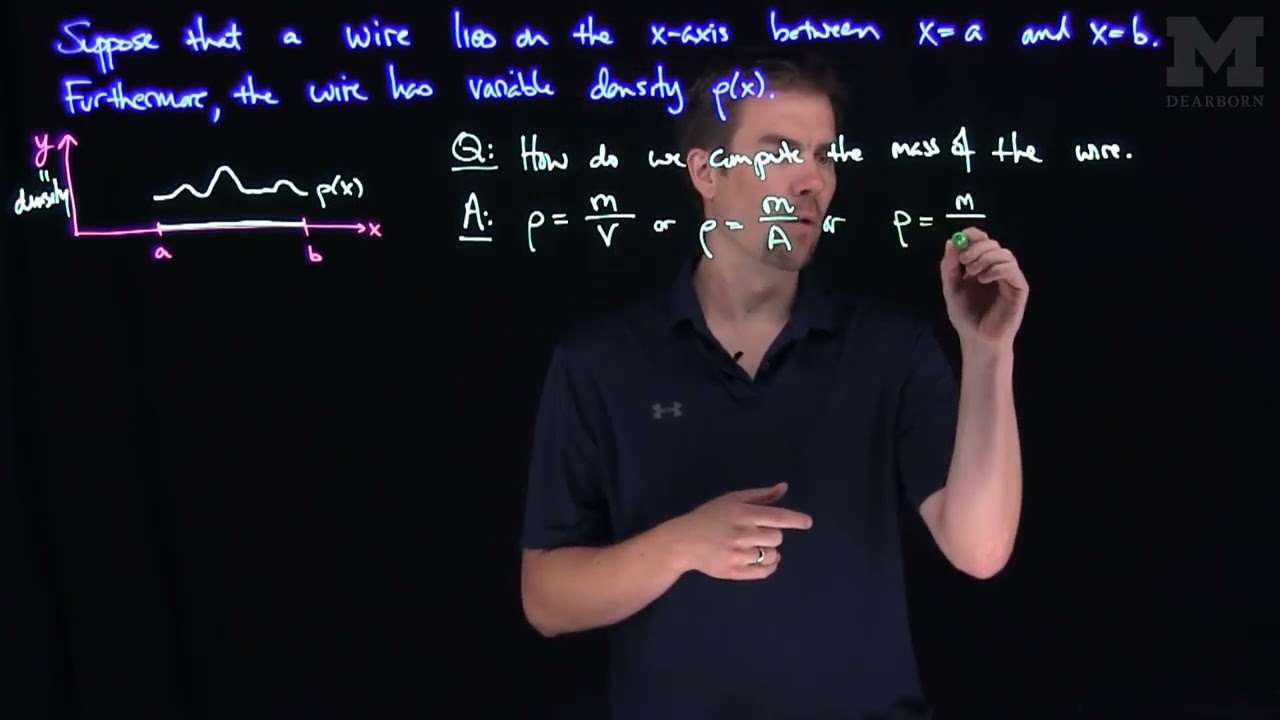 Suppose that a wire lies on the x-axis between x=a and x=b.
Furthermore, the wire has variable density ρ(x).
M
DEARBORN
y
"
density
ρ(x)
x
a b
Q: How do we compute the mass of the wire.
A: ρ = m/V or ρ = m/A or ρ = m